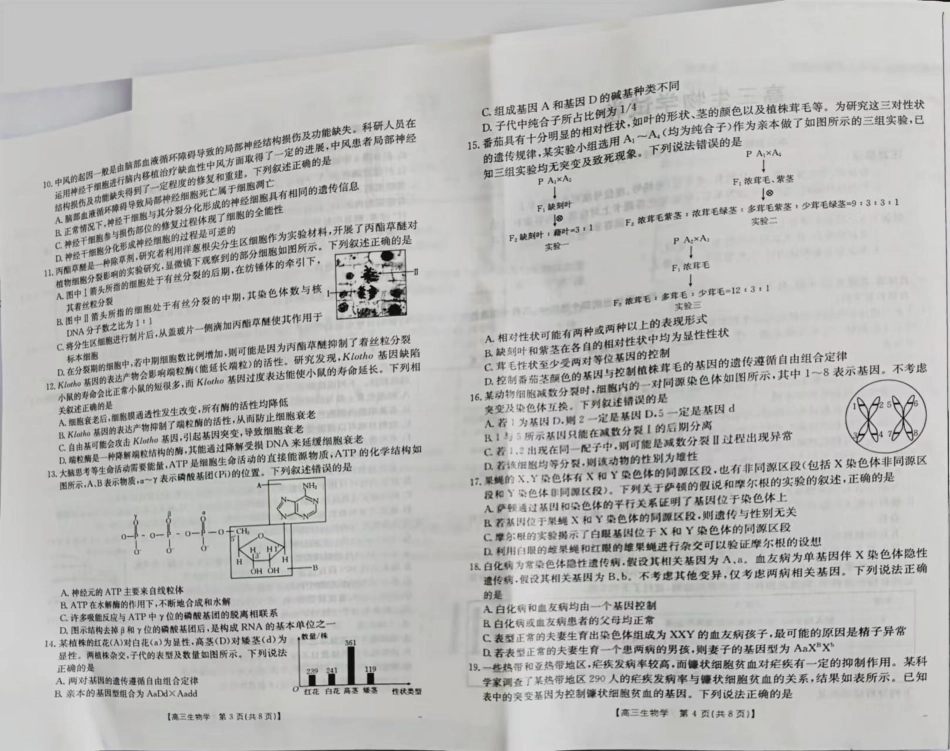 10. 中风的起因一般是由脑部血液循环障碍导致的局部神经结构损伤及功能缺失。科研人员在
运用神经干细胞进行脑内移植治疗缺血性中风方面取得了一定的进展,中风患者局部神经
结构损伤及功能缺失得到了一定程度的修复和重建。下列叙述正确的是
A. 脑部血液循环障碍导致局部神经细胞死亡属于细胞凋亡
B. 正常情况下,神经干细胞与其分裂分化形成的神经细胞具有相同的遗传信息
C. 神经干细胞参与损伤部位的修复过程体现了细胞的全能性
D. 神经干细胞分化形成神经细胞的过程是可逆的
11. 丙酯草醚是一种除草剂,研究者利用洋葱根尖分生区细胞作为实验材料,开展了丙酯草醚对
植物细胞分裂影响的实验研究,显微镜下观察到的部分细胞如图所示。下列叙述正确的是
A. 图中Ⅰ箭头所指的细胞处于有丝分裂的后期,在纺锤体的牵引下,
其着丝粒分裂
B. 图中Ⅱ箭头所指的细胞处于有丝分裂的中期,其染色体数与核
DNA 分子数之比为 1∶1
C. 将分生区细胞进行制片后,从盖玻片一侧滴加丙酯草醚使其作用于
标本细胞
D. 在分裂期的细胞中,若中期细胞数比例增加,则可能是因为丙酯草醚抑制了着丝粒分裂
Ⅰ
Ⅱ
12. Klotho 基因的表达产物会影响端粒酶(能延长端粒)的活性。研究发现,Klotho 基因缺陷
小鼠的寿命会比正常小鼠的短很多,而 Klotho 基因过度表达能使小鼠的寿命延长。下列相
关叙述正确的是
A. 细胞衰老后,细胞膜通透性发生改变,所有酶的活性均降低
B. Klotho 基因的表达产物抑制了端粒酶的活性,从而防止细胞衰老
C. 自由基可能会攻击 Klotho 基因,引起基因突变,导致细胞衰老
D. 端粒酶是一种降解端粒结构的酶,其能通过降解受损 DNA 来延缓细胞衰老
13. 大脑思考等生命活动需要能量,ATP 是细胞生命活动的直接能源物质,ATP 的化学结构如
图所示,A、B 表示物质,α~γ 表示磷酸基团(Pi)的位置。下列叙述错误的是
A
NH₂
N
γ β α
O-P-O-P-O-P-O-CH₂
O
H H
OH OH
B
A. 神经元的 ATP 主要来自线粒体
B. ATP 在水解酶的作用下,不断地合成和水解
C. 许多吸能反应与 ATP 中 γ 位的磷酸基团的脱离相联系
D. 图示结构去掉 β 和 γ 位的磷酸基团后,是构成 RNA 的基本单位之一
14. 某植株的红花(A)对白花(a)为显性,高茎(D)对矮茎(d)为
显性。两植株杂交,子代的表型及数量如图所示。下列说法
正确的是
A. 两对基因的遗传遵循自由组合定律
B. 亲本的基因型组合为 AaDd×Aadd
数量/株
239 241 361 119
O 红花 白花 高茎 矮茎 性状类型
【高三生物学 第 3 页(共 8 页)】
C. 组成基因 A 和基因 D 的碱基种类不同
D. 子代中纯合子所占比例为 1/4
15. 番茄具有十分明显的相对性状,如叶的形状、茎的颜色以及植株茸毛等。为研究这三对性状
的遗传规律,某实验小组选用 A₁~A₄(均为纯合子)作为亲本做了如图所示的三组实验,已
知三组实验均无突变及致死现象。下列说法错误的是
P A₁×A₂
F₁ 缺刻叶
⊗
F₂ 缺刻叶∶薯叶=3∶1
实验一
P A₁×A₄
F₁ 浓茸毛、紫茎
⊗
F₂ 浓茸毛紫茎∶浓茸毛绿茎∶多茸毛紫茎∶少茸毛绿茎=9∶3∶3∶1
实验二
P A₂×A₃
F₁ 浓茸毛
F₂ 浓茸毛∶多茸毛∶少茸毛=12∶3∶1
实验三
A. 相对性状可能有两种或两种以上的表现形式
B. 缺刻叶和紫茎在各自的相对性状中均为显性性状
C. 茸毛性状至少受两对等位基因的控制
D. 控制番茄茎颜色的基因与控制植株茸毛的基因的遗传遵循自由组合定律
16. 某动物细胞减数分裂时,细胞内的一对同源染色体如图所示,其中 1~8 表示基因。不考虑
突变及染色体互换。下列叙述错误的是
A. 若 1 为基因 D,则 2 一定是基因 D,5 一定是基因 d
B. 1 与 5 所示基因只能在减数分裂Ⅰ的后期分离
C. 若 1、2 出现在同一配子中,则可能是减数分裂Ⅱ过程出现异常
D. 若该细胞均等分裂,则该动物的性别为雄性
1 2 5 6
3 4 7 8
17. 果蝇的 X、Y 染色体有 X 和 Y 染色体的同源区段,也有非同源区段(包括 X 染色体非同源区
段和 Y 染色体非同源区段)。下列关于萨顿的假说和摩尔根的实验的叙述,正确的是
A. 萨顿通过基因和染色体的平行关系证明了基因位于染色体上
B. 若基因位于果蝇 X 和 Y 染色体的同源区段,则遗传与性别无关
C. 摩尔根的实验揭示了白眼基因位于 X 和 Y 染色体的同源区段
D. 利用白眼的雌果蝇和红眼的雄果蝇进行杂交可以验证摩尔根的设想
18. 白化病为常染色体隐性遗传病,假设其相关基因为 A、a。血友病为单基因伴 X 染色体隐性
遗传病,假设其相关基因为 B、b。不考虑其他变异,仅考虑两病相关基因。下列说法正确
的是
A. 白化病和血友病均由一个基因控制
B. 白化病或血友病患者的父母均正常
C. 表型正常的夫妻生育出染色体组成为 XXY 的血友病孩子,最可能的原因是精子异常
D. 若表型正常的夫妻生育一个患两病的男孩,则妻子的基因型为 AaXᴮXᵇ
19. 一些热带和亚热带地区,疟疾发病率较高,而镰状细胞贫血对疟疾有一定的抑制作用。某科
学家调查了某热带地区 290 人的疟疾发病率与镰状细胞贫血的关系,结果如表所示。已知
表中的突变基因为控制镰状细胞贫血的基因。下列说法正确的是
【高三生物学 第 4 页(共 8 页)】